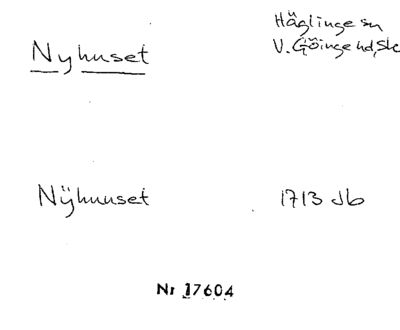 Häglinge sn
Nyhuset
V. Göinge hd, Sk
Nÿhuuset
1713 Jb
Nr 17604